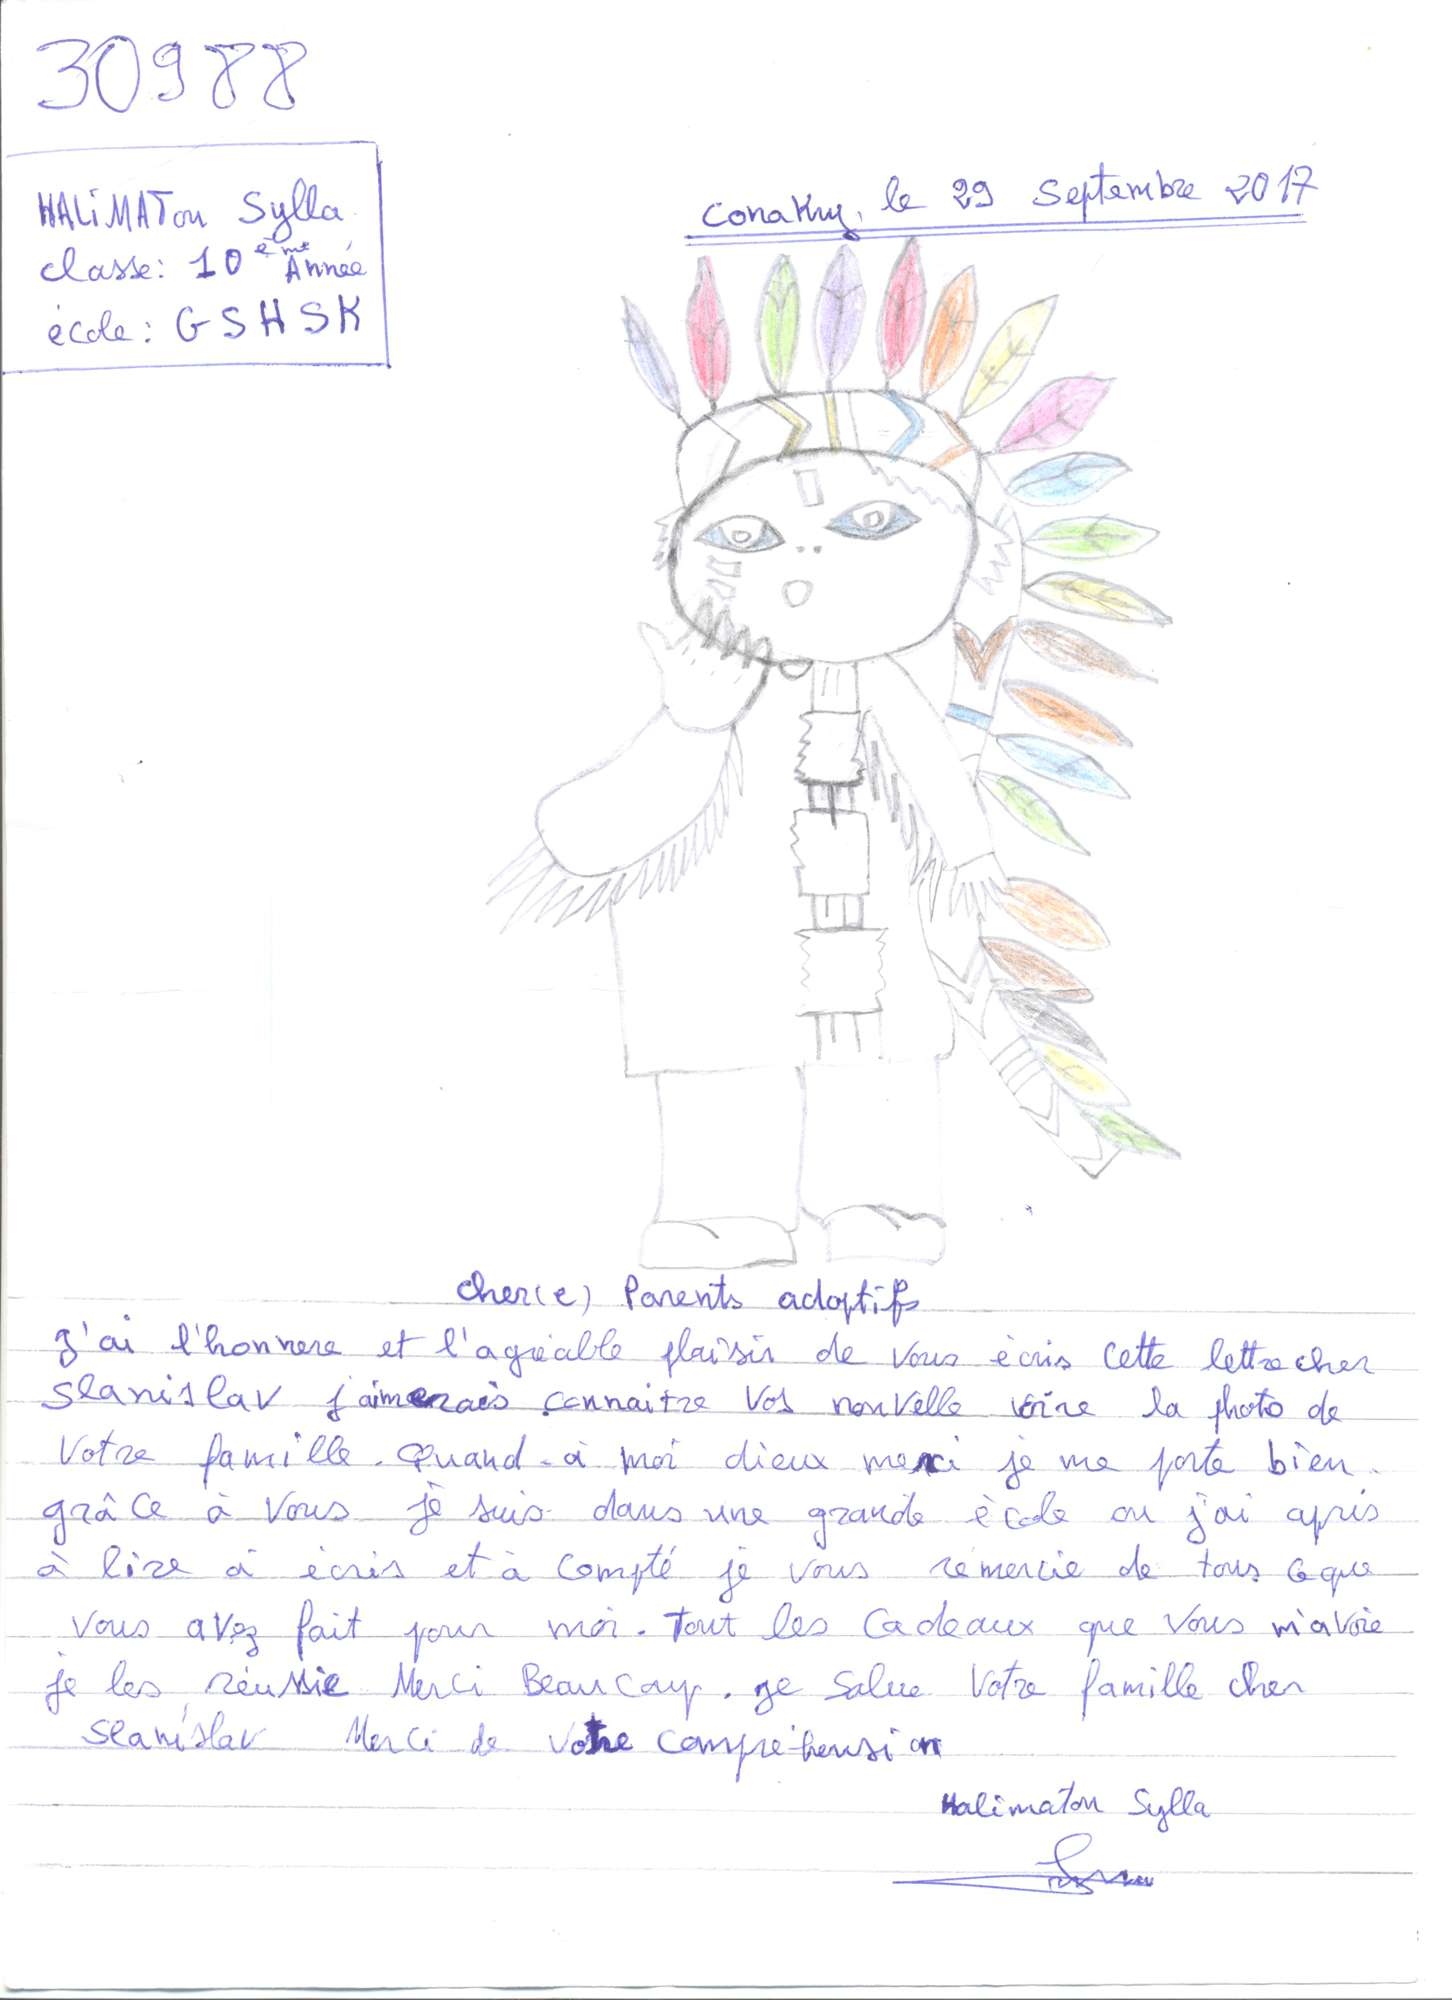 30988
HALIMATou Sylla
classe: 10ème Année
école: GSHSK
Conakry, le 29 Septembre 2017
cher(e) Parents adoptifs
J'ai l'honnere et l'agréable plaisir de vous écris cette lettre cher
Slanislav j'aimerais connaitre vos nouvelle voire la photo de
votre famille. Quand-à moi dieux merci je me porte bien.
grâce à vous je suis dans une grande école ou j'ai apris
à lire à écris et à compté je vous remercie de tous ce que
vous avez fait pour moi. Tout les cadeaux que vous m'avoie
je les réussie Merci Beaucoup. je salue votre famille cher
Slanislav Merci de votre compréhension
Halimatou Sylla